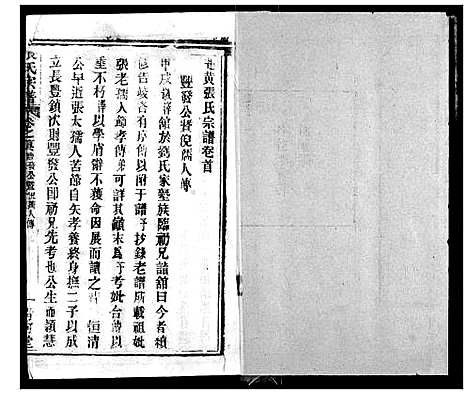 黄張氏宗譜卷首
豐發公暨倪孺人傳
甲戌歲館於劉氏家塾族臨初兄詣館曰今者續
修告峻咨有序傳以附于譜予抄錄老譜所載祖妣
張老孺人節孝傳弟可詳其顛末為予考妣台傳以
垂不朽予以學膚辭不獲命因展而讀之 恒清
公早逝張太孺人苦節自矢孝養終身撫二子以成
立長豐鎮次則豐發公即初兄先考也公生而穎慧
張氏宗譜卷之首 豐發公暨倪孺人傳
一
堂